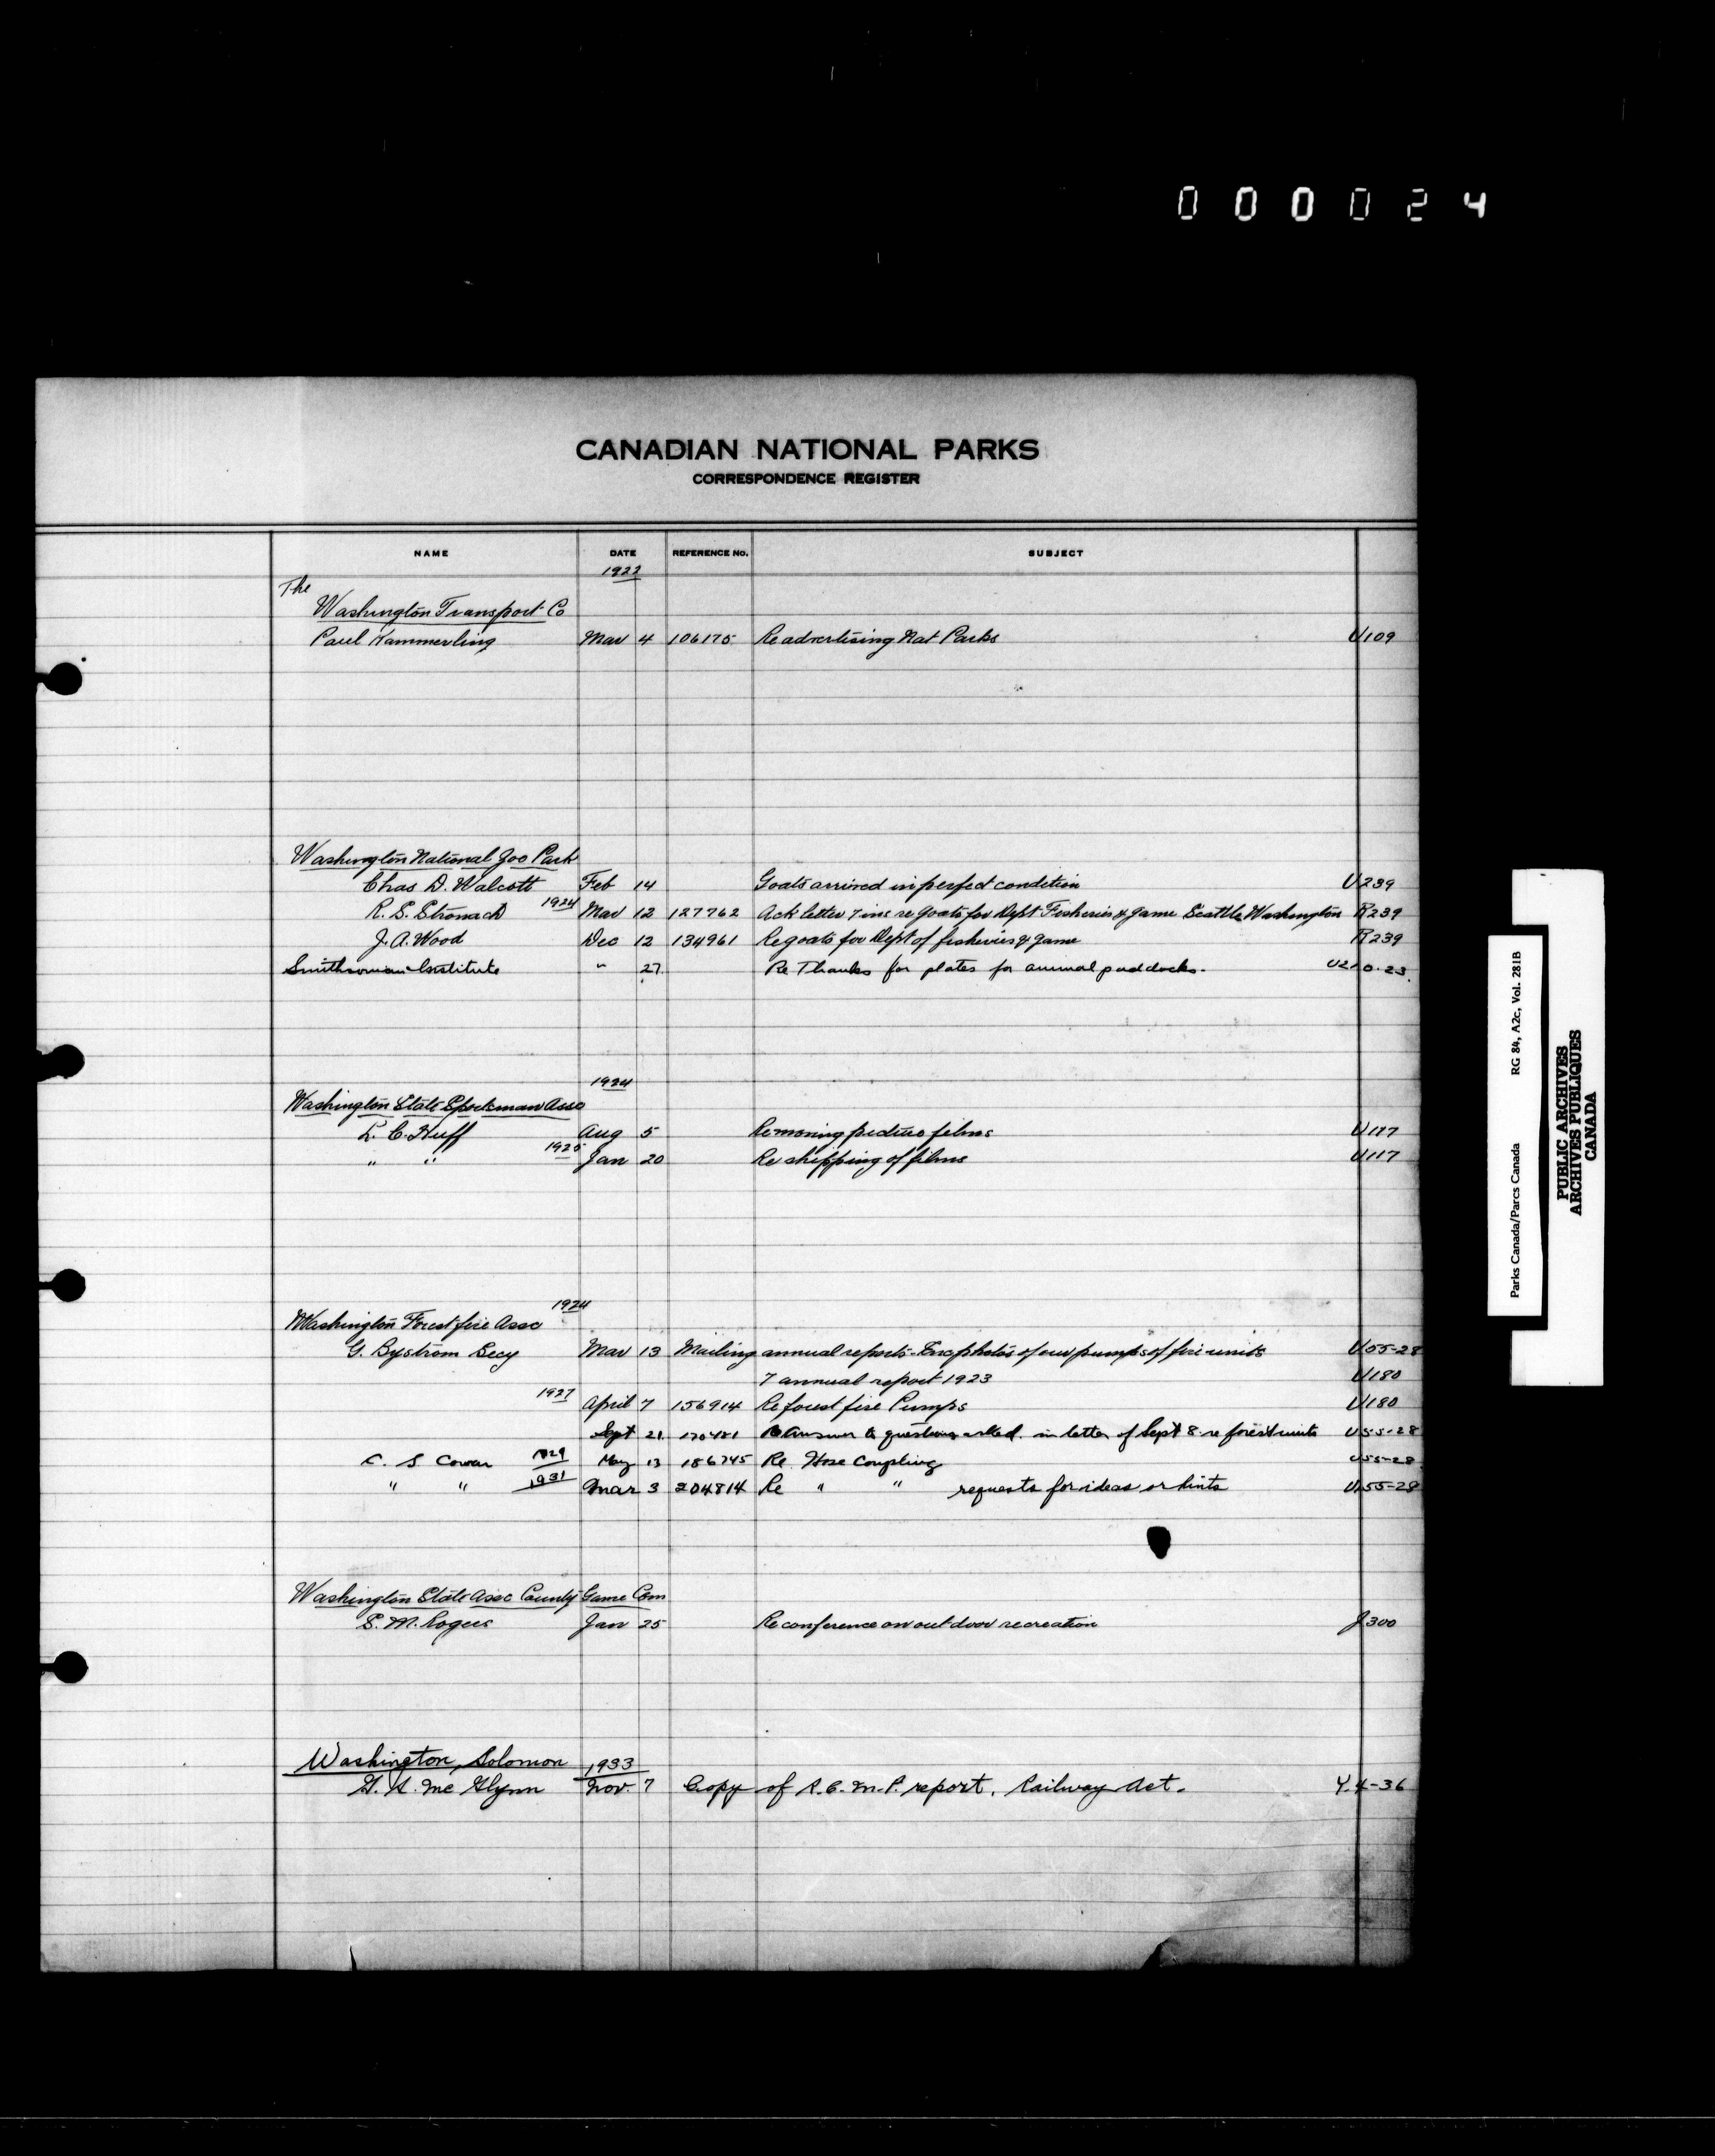 000024
CANADIAN NATIONAL PARKS
CORRESPONDENCE REGISTER
NAME DATE REFERENCE No. SUBJECT
1922
The
Washington Transport Co
Paul Kammerling Mar 4 106175 Re advertising Nat Parks U109
Washington National Zoo Park
Chas D. Walcott Feb 14 Goats arrived in perfect condition U239
R. S. Stronach 1924 Mar 12 127762 Ack letter 7 inc re goats for Dept Fisheries & Game Seattle Washington R239
J. A. Wood Dec 12 134961 Re goats for Dept of fisheries & game R239
Smithsonian Institute " 27 Re Thanks for plates for animal paddocks. U210-23
1924
Washington State Asso
L. C. Huff Aug 5 Re moving picture films U117
" " 1925 Jan 20 Re shipping of films U117
1924
Washington Forest fire Asso
G. Bystrom Secy Mar 13 Mailing annual reports - Enc photos of our pumps of fire units U55-28
7 annual report 1923 U180
1927 April 7 156914 Re forest fire Pumps U180
Sept 21 Answer to questions asked in letter of Sept 8 re forest units U55-28
C. S. Cowan 1929 May 13 186745 Re Hose Coupling U55-28
" " 1931 Mar 3 204814 Re " " requests for ideas or hints U55-28
Washington State Assc County Game Com
S. M. Rogers Jan 25 Re conference on outdoor recreation J300
Washington, Solomon 1933
G. A. Mc Glynn Nov. 7 Copy of R.C.M.P. report. Railway Act. Y.4-36
Parks Canada/Parcs Canada RG 84, A2c, Vol. 281B
PUBLIC ARCHIVES
ARCHIVES PUBLIQUES
CANADA